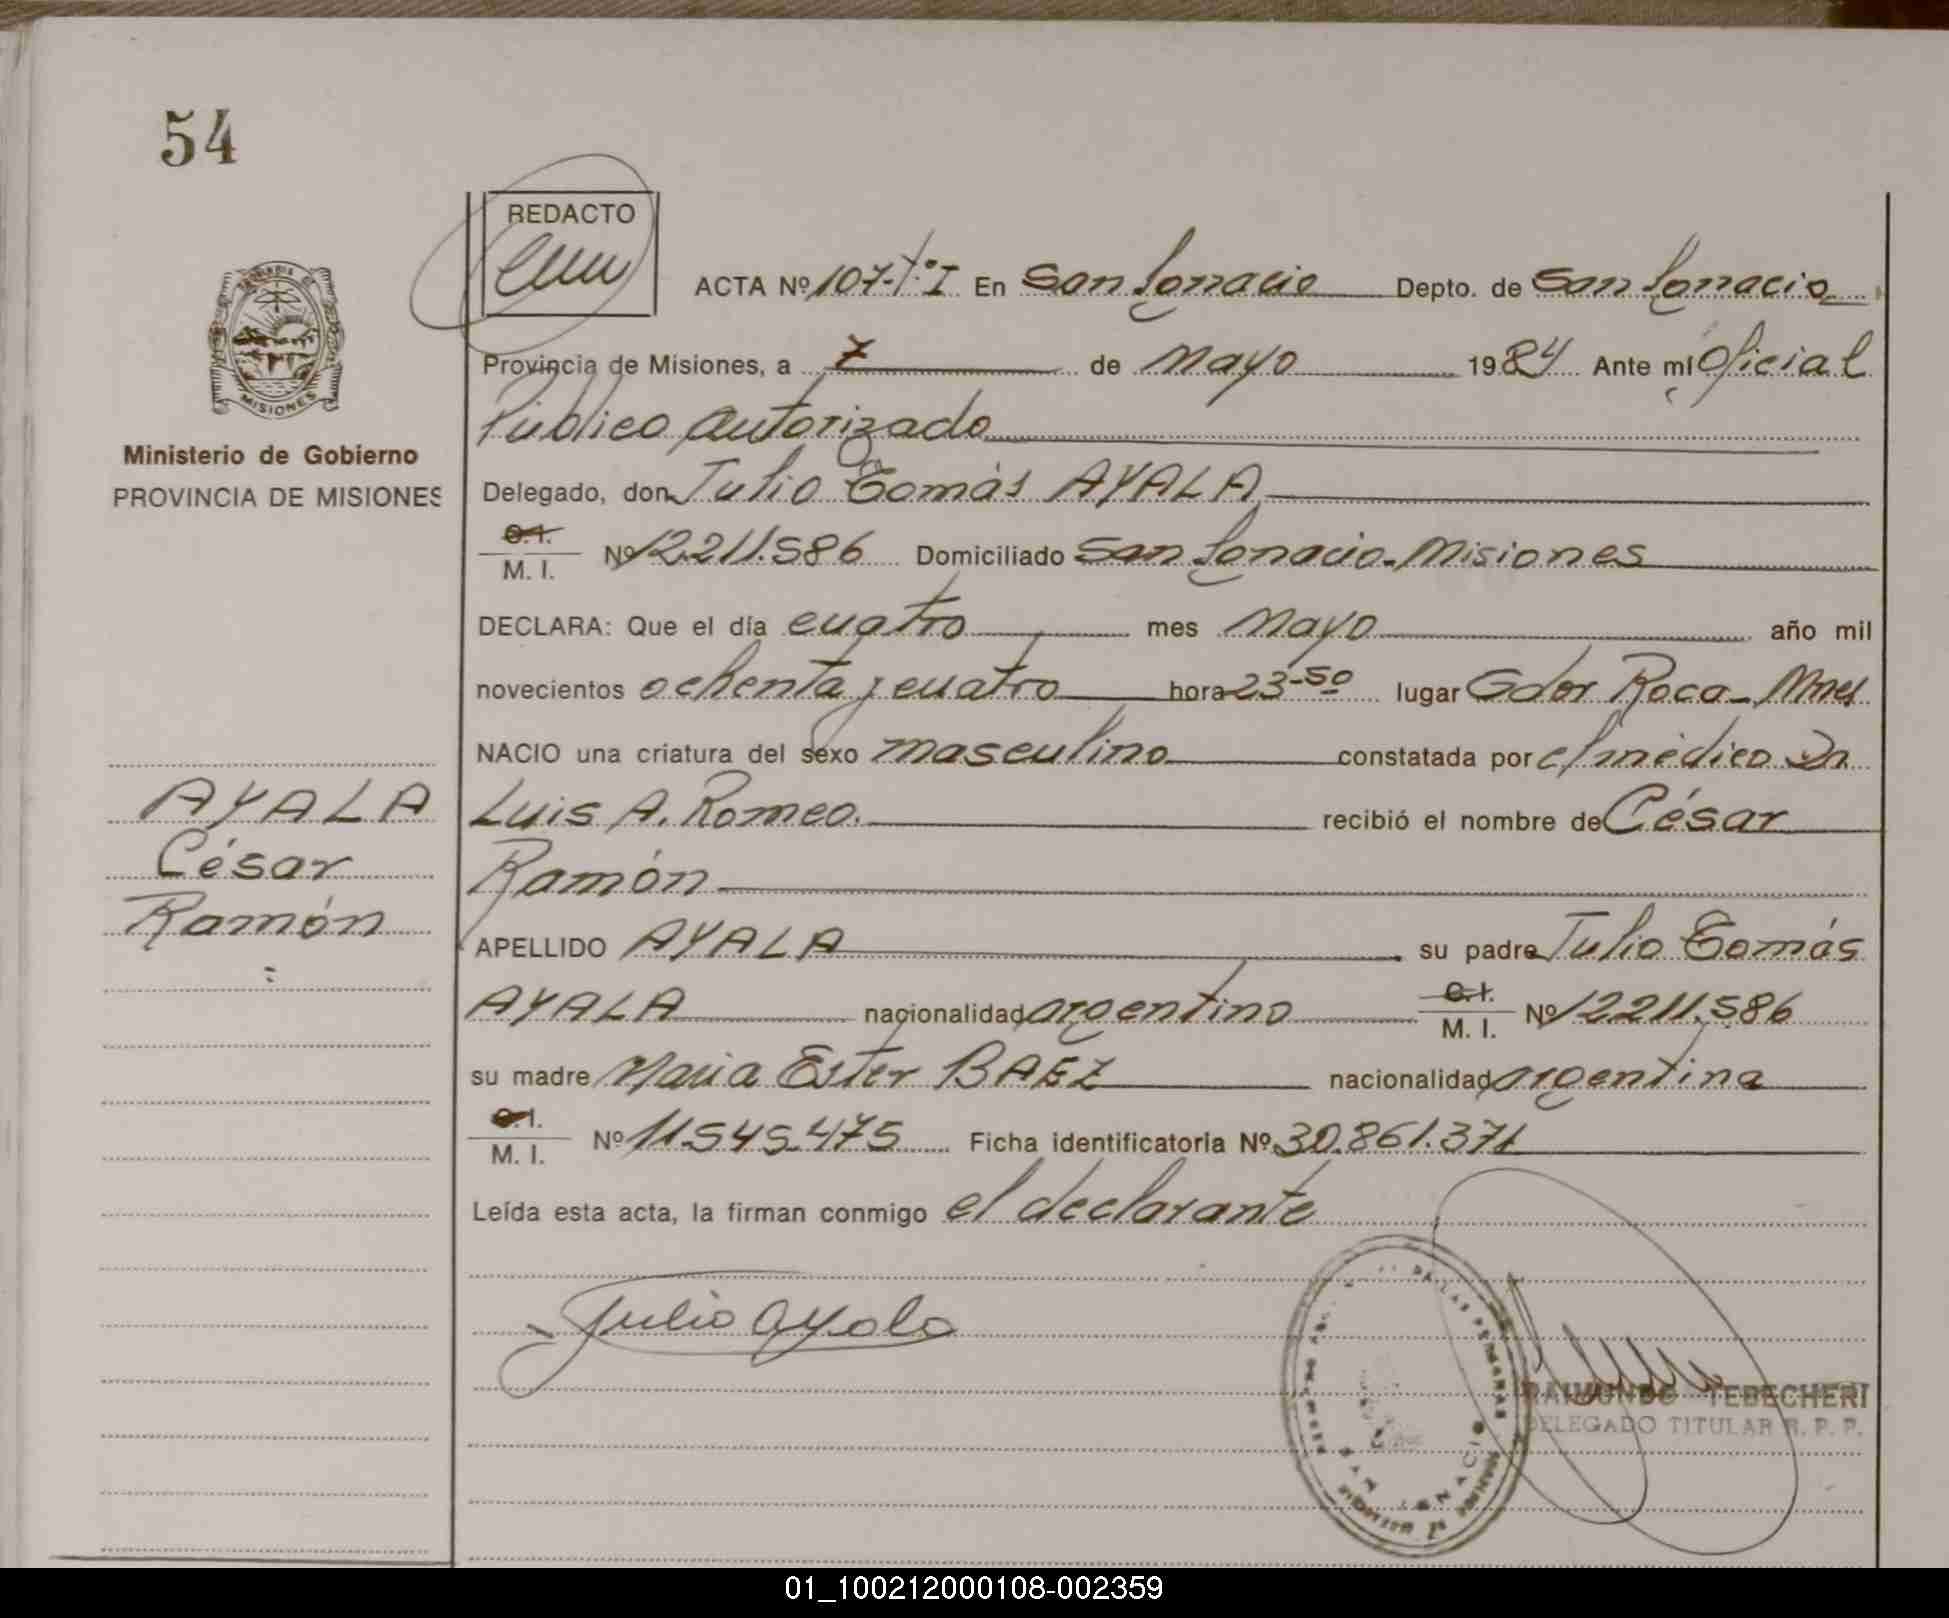 54
REDACTO
ACTA Nº 107-Tº I En San Ignacio Depto. de San Ignacio
Provincia de Misiones, a 7 de Mayo 1984 Ante mí Oficial
Público Autorizado
Ministerio de Gobierno
PROVINCIA DE MISIONES
MISIONES
Delegado, don Julio Tomás AYALA
C.I. M. I. Nº 12.211.586 Domiciliado San Ignacio-Misiones
DECLARA: Que el día cuatro mes Mayo año mil
novecientos ochenta y cuatro hora 23-50 lugar Gdor Roca-Mnes
NACIO una criatura del sexo masculino constatada por el médico Dn
Luis A. Romeo. recibió el nombre de César
Ramón
AYALA
César
Ramón
APELLIDO AYALA su padre Julio Tomás
AYALA nacionalidad argentino C.I. M. I. Nº 12.211.586
su madre Maria Ester BAEZ nacionalidad argentina
C.I. M. I. Nº 11.545.475 Ficha identificatoria Nº 30.861.371
Leída esta acta, la firman conmigo el declarante
Julio Ayala
DE LAS PERSONAS
SAN IGNACIO
RAIMUNDO TEBECHERI
DELEGADO TITULAR R. P. P.
01_100212000108-002359